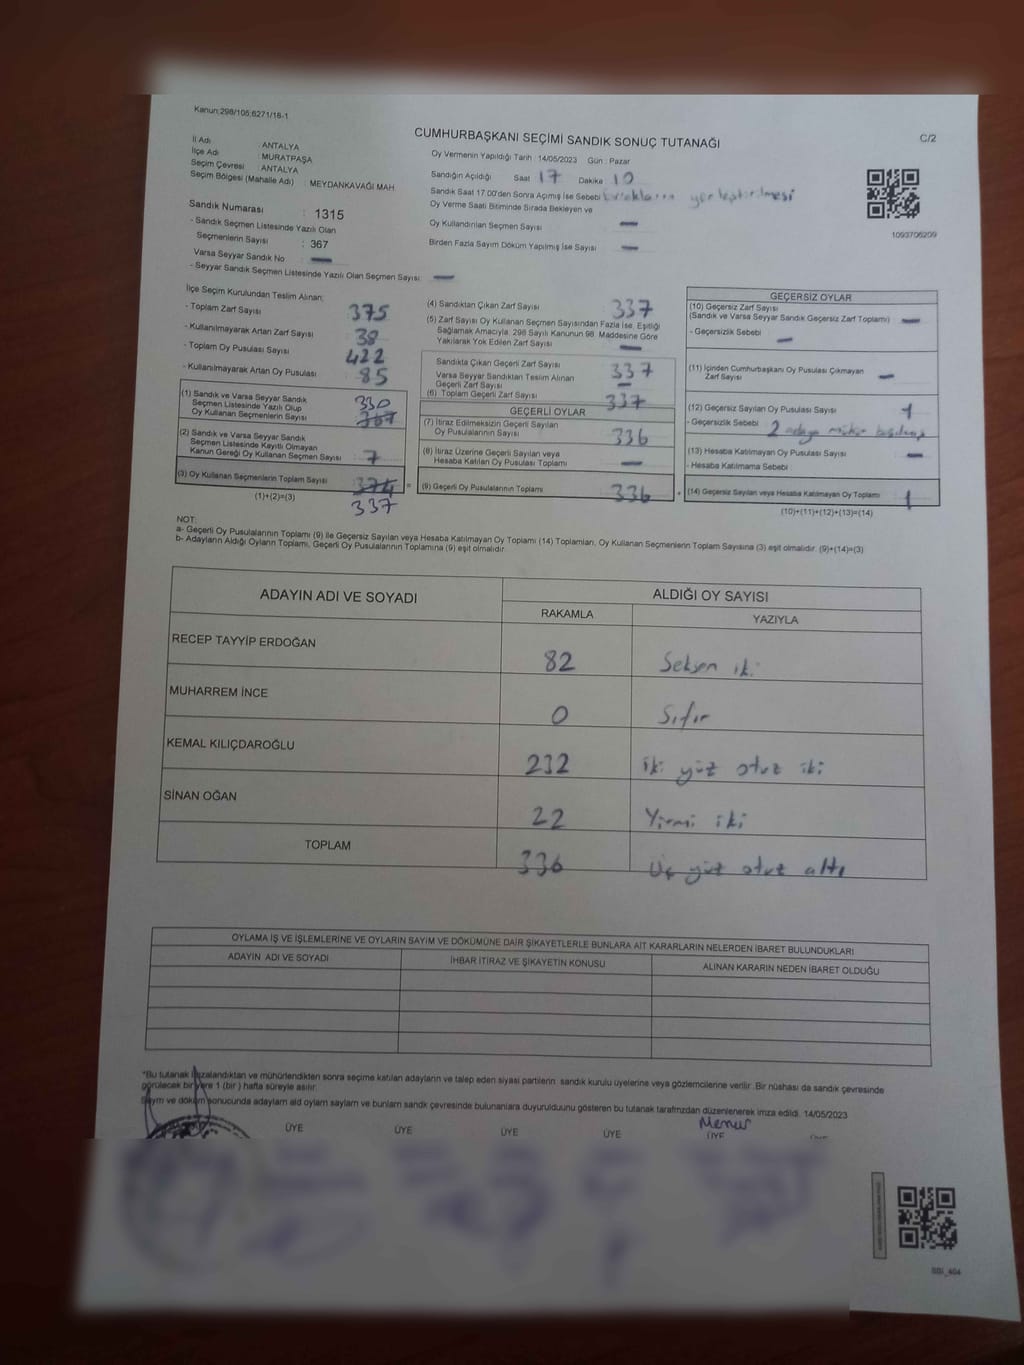 Kanun:298/105;6271/16-1
CUMHURBAŞKANI SEÇİMİ SANDIK SONUÇ TUTANAĞI
C/2
İl Adı : ANTALYA
İlçe Adı : MURATPAŞA
Seçim Çevresi : ANTALYA
Seçim Bölgesi (Mahalle Adı) : MEYDANKAVAĞI MAH
Sandık Numarası : 1315
- Sandık Seçmen Listesinde Yazılı Olan
Seçmenlerin Sayısı : 367
Varsa Seyyar Sandık No —
- Seyyar Sandık Seçmen Listesinde Yazılı Olan Seçmen Sayısı: —
Oy Vermenin Yapıldığı Tarih : 14/05/2023 Gün : Pazar
Sandığın Açıldığı Saat 17 Dakika 10
Sandık Saat 17.00'den Sonra Açılmış İse Sebebi yerleştirilmesi
Oy Verme Saati Bitiminde Sırada Bekleyen ve
Oy Kullandırılan Seçmen Sayısı —
Birden Fazla Sayım Döküm Yapılmış İse Sayısı —
1093706209
İlçe Seçim Kurulundan Teslim Alınan:
- Toplam Zarf Sayısı 375
- Kullanılmayarak Artan Zarf Sayısı 38
- Toplam Oy Pusulası Sayısı 422
- Kullanılmayarak Artan Oy Pusulası 85
(1) Sandık ve Varsa Seyyar Sandık
Seçmen Listesinde Yazılı Olup
Oy Kullanan Seçmenlerin Sayısı 330
(2) Sandık ve Varsa Seyyar Sandık
Seçmen Listesinde Kayıtlı Olmayan
Kanun Gereği Oy Kullanan Seçmen Sayısı : 7
(3) Oy Kullanan Seçmenlerin Toplam Sayısı 374 =
(1)+(2)=(3)
337
(4) Sandıktan Çıkan Zarf Sayısı 337
(5) Zarf Sayısı Oy Kullanan Seçmen Sayısından Fazla İse, Eşitliği
Sağlamak Amacıyla, 298 Sayılı Kanunun 98. Maddesine Göre
Yakılarak Yok Edilen Zarf Sayısı —
Sandıkta Çıkan Geçerli Zarf Sayısı 337
Varsa Seyyar Sandıktan Teslim Alınan
Geçerli Zarf Sayısı —
(6) Toplam Geçerli Zarf Sayısı 337
GEÇERLİ OYLAR
(7) İtiraz Edilmeksizin Geçerli Sayılan
Oy Pusulalarının Sayısı 336
(8) İtiraz Üzerine Geçerli Sayılan veya
Hesaba Katılan Oy Pusulası Toplamı —
(9) Geçerli Oy Pusulalarının Toplamı 336 +
GEÇERSİZ OYLAR
(10) Geçersiz Zarf Sayısı
(Sandık ve Varsa Seyyar Sandık Geçersiz Zarf Toplamı) —
- Geçersizlik Sebebi —
(11) İçinden Cumhurbaşkanı Oy Pusulası Çıkmayan
Zarf Sayısı —
(12) Geçersiz Sayılan Oy Pusulası Sayısı 1
- Geçersizlik Sebebi 2 adaya mühür
(13) Hesaba Katılmayan Oy Pusulası Sayısı —
- Hesaba Katılmama Sebebi
(14) Geçersiz Sayılan veya Hesaba Katılmayan Oy Toplamı 1
(10)+(11)+(12)+(13)=(14)
NOT:
a- Geçerli Oy Pusulalarının Toplamı (9) ile Geçersiz Sayılan veya Hesaba Katılmayan Oy Toplamı (14) Toplamları, Oy Kullanan Seçmenlerin Toplam Sayısına (3) eşit olmalıdır. (9)+(14)=(3)
b- Adayların Aldığı Oyların Toplamı, Geçerli Oy Pusulalarının Toplamına (9) eşit olmalıdır.
ADAYIN ADI VE SOYADI
ALDIĞI OY SAYISI
RAKAMLA YAZIYLA
RECEP TAYYİP ERDOĞAN 82 Seksen iki
MUHARREM İNCE 0 Sıfır
KEMAL KILIÇDAROĞLU 232 iki yüz otuz iki
SİNAN OĞAN 22 Yirmi iki
TOPLAM 336 Üç yüz otuz altı
OYLAMA İŞ VE İŞLEMLERİNE VE OYLARIN SAYIM VE DÖKÜMÜNE DAİR ŞİKAYETLERLE BUNLARA AİT KARARLARIN NELERDEN İBARET BULUNDUKLARI
ADAYIN ADI VE SOYADI
İHBAR İTİRAZ VE ŞİKAYETİN KONUSU
ALINAN KARARIN NEDEN İBARET OLDUĞU
"Bu tutanak imzalandıktan ve mühürlendikten sonra seçime katılan adayların ve talep eden siyasi partilerin sandık kurulu üyelerine veya gözlemcilerine verilir. Bir nüshası da sandık çevresinde
görülecek bir yere 1 (bir) hafta süreyle asılır.
Sayım ve döküm sonucunda adayların ald oylarn sayların ve bunların sandk çevresinde bulunanlara duyurulduunu gösteren bu tutanak tarafmzdan düzenlenerek imza edildi. 14/05/2023
ÜYE ÜYE ÜYE ÜYE ÜYE
Memur